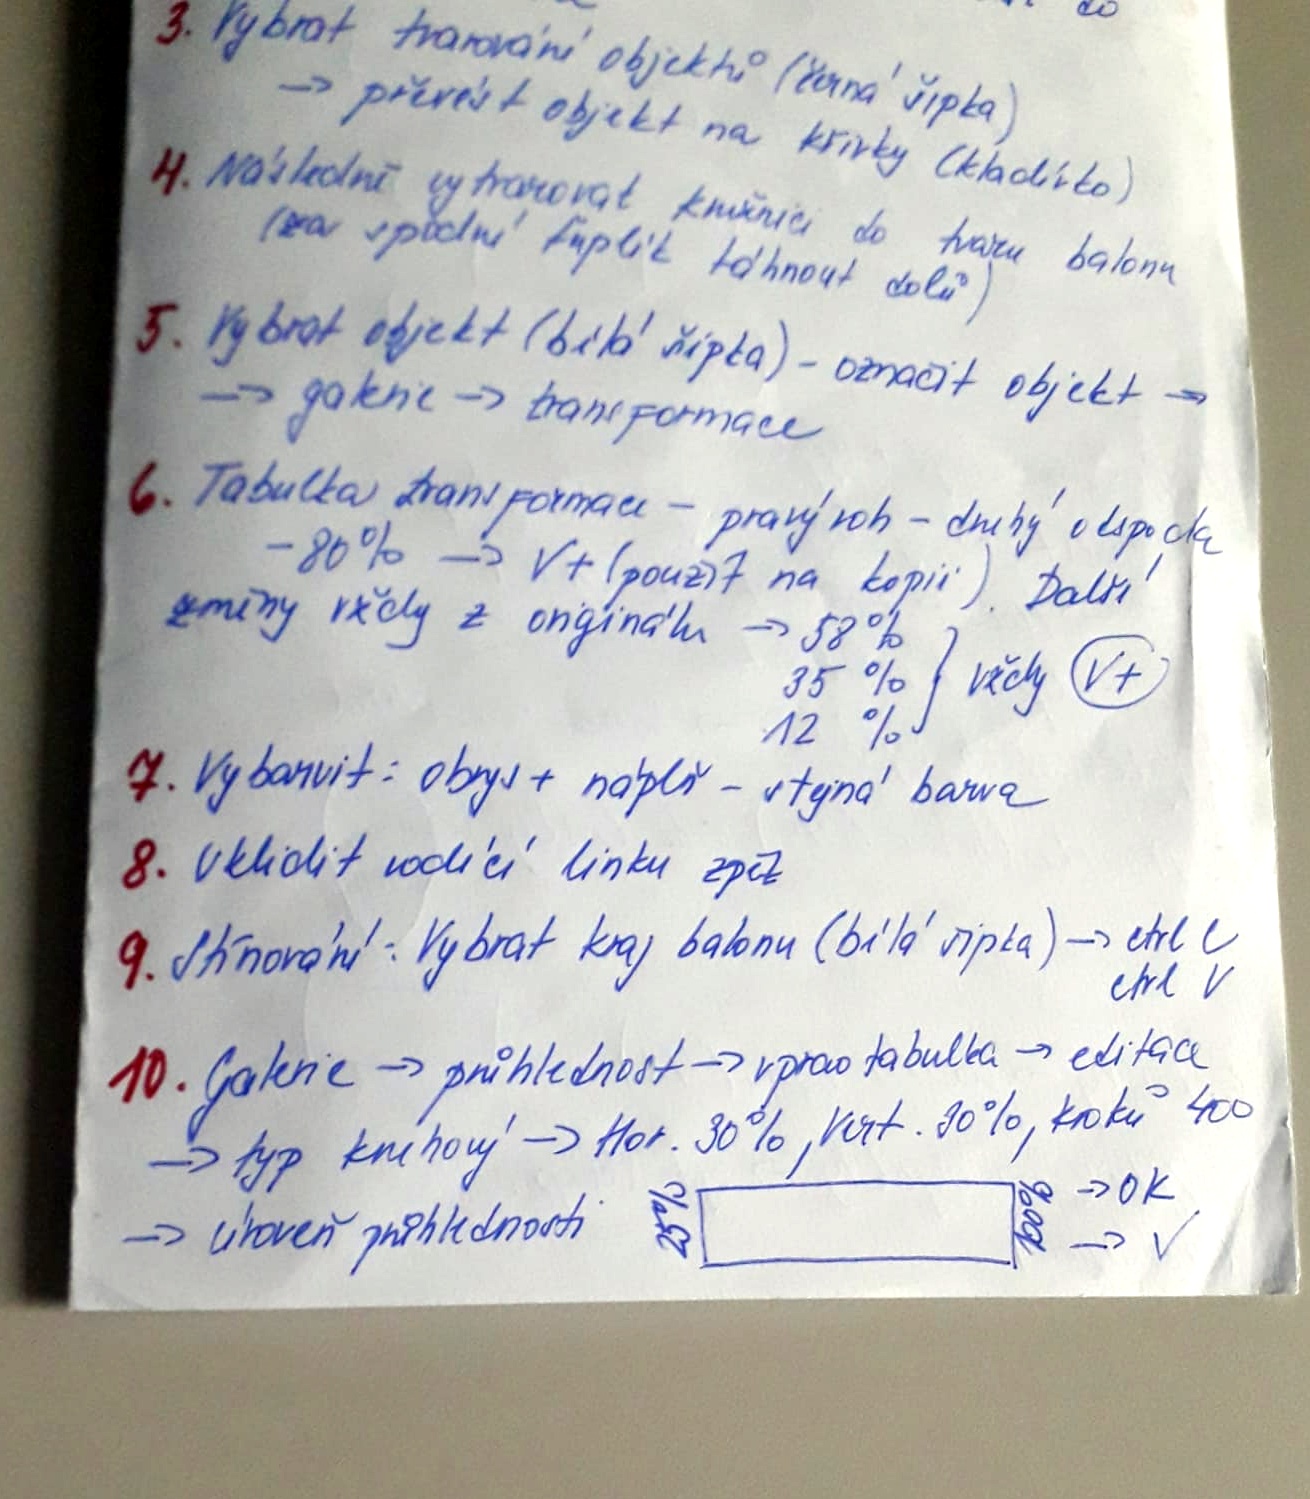 do
3. Vybrat tvarování objektů (černá šipka)
→ převést objekt na křivky (kladívko)
4. Následně vytvarovat kružnici do tvaru balonu
(za spodní šuplík táhnout dolů)
5. Vybrat objekt (bílá šipka) - označit objekt →
→ galerie → transformace
6. Tabulka transformace - pravý roh - druhý odspoda
- 80% → V+ (použít na kopii). Další
změny vždy z originálu → 58%
35 % } vždy V+
12 %
7. Vybarvit: obrys + náplň - stejná barva
8. Uklidit vodící linku zpět
9. Stínování: Vybrat kraj balonu (bílá šipka) → ctrl C
ctrl V
10. Galerie → průhlednost → vpravo tabulka → editace
→ typ kruhový → Hor. 30%, Vert. 30%, kroků 400
→ úroveň průhlednosti 25% 100% → OK
→ V